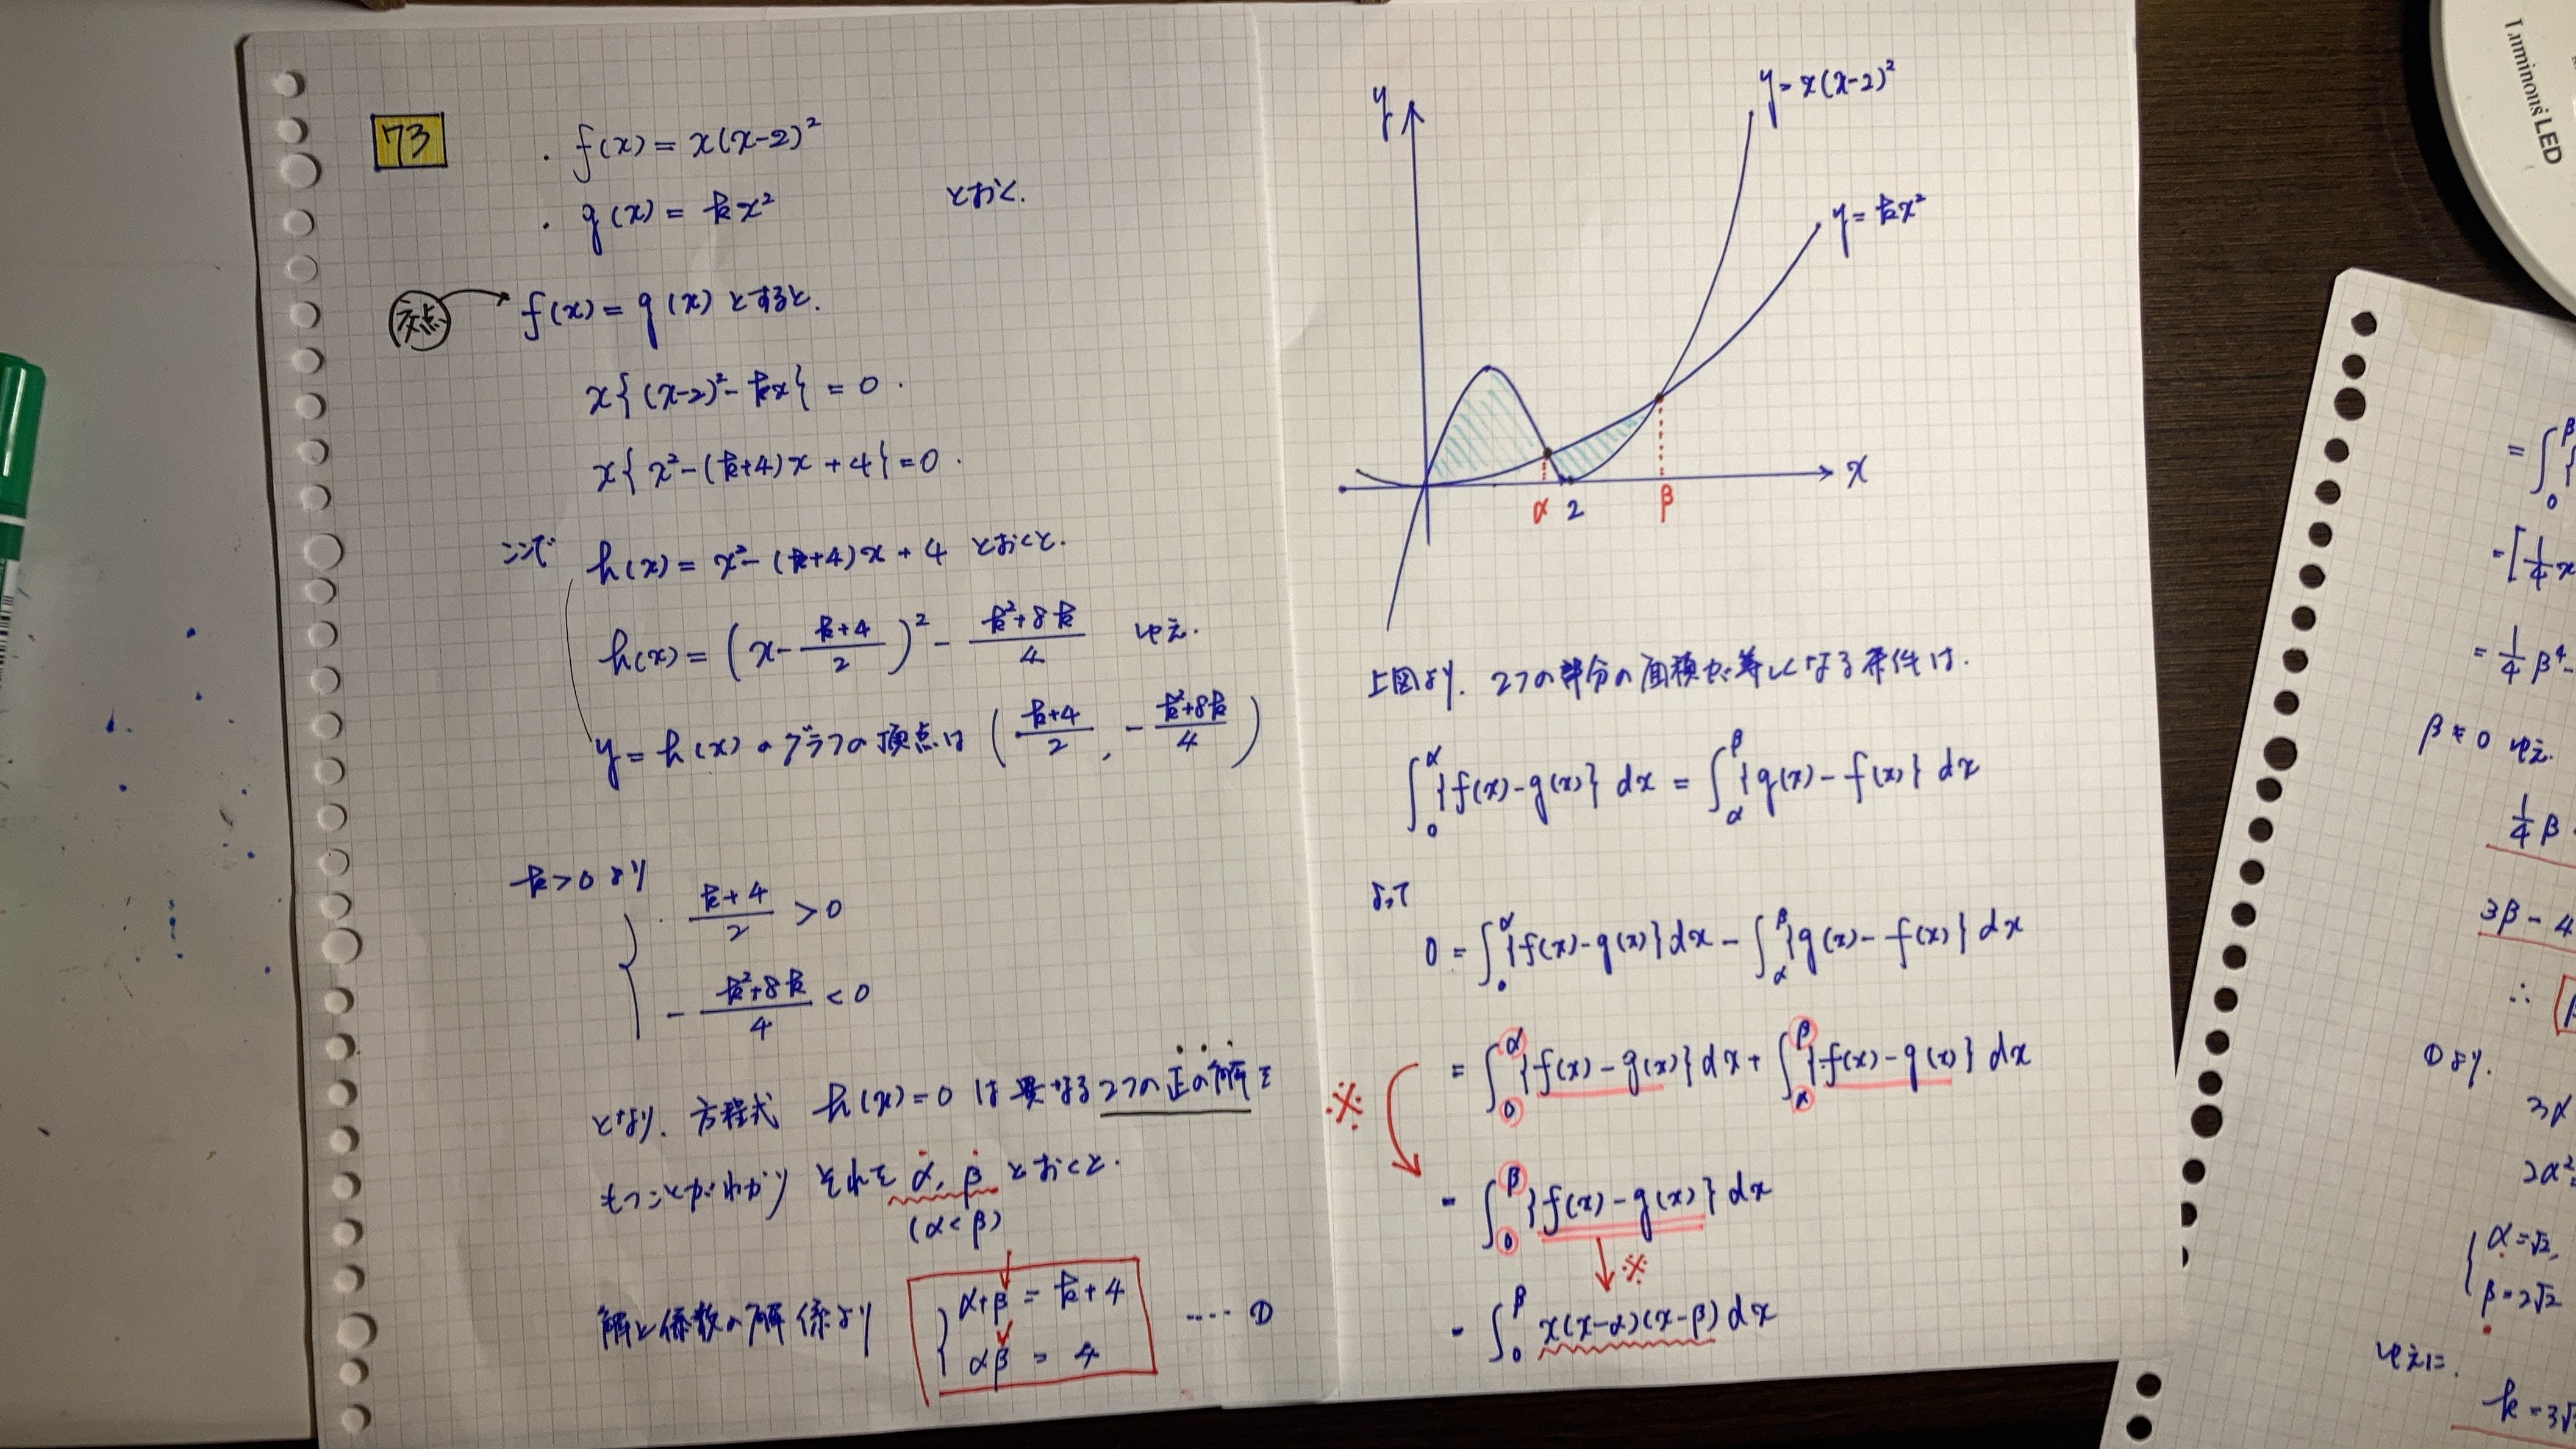 73
・ f(x) = x(x-2)²
・ g(x) = kx² とおく.
交点
f(x) = g(x) とすると.
x{(x-2)² - kx} = 0 .
x{x² - (k+4)x + 4} = 0 .
ここで h(x) = x² - (k+4)x + 4 とおくと.
h(x) = (x - (k+4)/2)² - (k²+8k)/4 ゆえ.
y = h(x) のグラフの頂点は ((k+4)/2 , -(k²+8k)/4)
k > 0 より
・ (k+4)/2 > 0
- (k²+8k)/4 < 0
となり. 方程式 h(x) = 0 は異なる2つの正の解を
もつことがわかり それを α, β とおくと.
(α < β)
解と係数の関係より { α+β = k+4
αβ = 4 ‥‥ ①
y
y = x(x-2)²
y = kx²
x
α 2 β
上図より. 2つの部分の面積が等しくなる条件は.
∫₀^α {f(x) - g(x)} dx = ∫_α^β {g(x) - f(x)} dx
よって
0 = ∫₀^α {f(x) - g(x)} dx - ∫_α^β {g(x) - f(x)} dx
= ∫₀^α {f(x) - g(x)} dx + ∫_α^β {f(x) - g(x)} dx
※
= ∫₀^β {f(x) - g(x)} dx
※
= ∫₀^β x(x-α)(x-β) dx
Luminous LED
= ∫₀^β {
= [1/4 x
= 1/4 β⁴ -
β ≠ 0 ゆえ.
1/4 β
3β - 4
∴
① より.
3α
2α² =
{ α = √2,
β = 2√2
ゆえに.
k = 3√